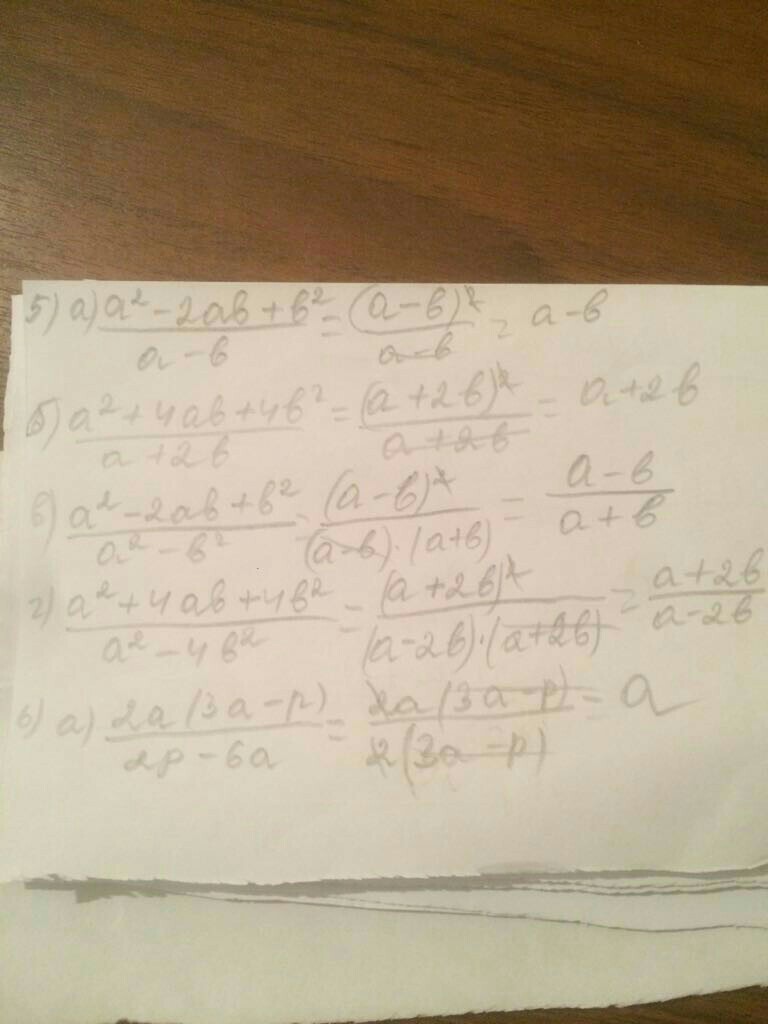 5) а) (a² - 2ab + b²)/(a - b) = (a - b)²/(a - b) = a - b
б) (a² + 4ab + 4b²)/(a + 2b) = (a + 2b)²/(a + 2b) = a + 2b
в) (a² - 2ab + b²)/(a² - b²) = (a - b)²/((a - b)·(a + b)) = (a - b)/(a + b)
г) (a² + 4ab + 4b²)/(a² - 4b²) = (a + 2b)²/((a - 2b)·(a + 2b)) = (a + 2b)/(a - 2b)
6) а) 2a(3a - p)/(2p - 6a) = 2a(3a - p)/(2(3a - p)) = a